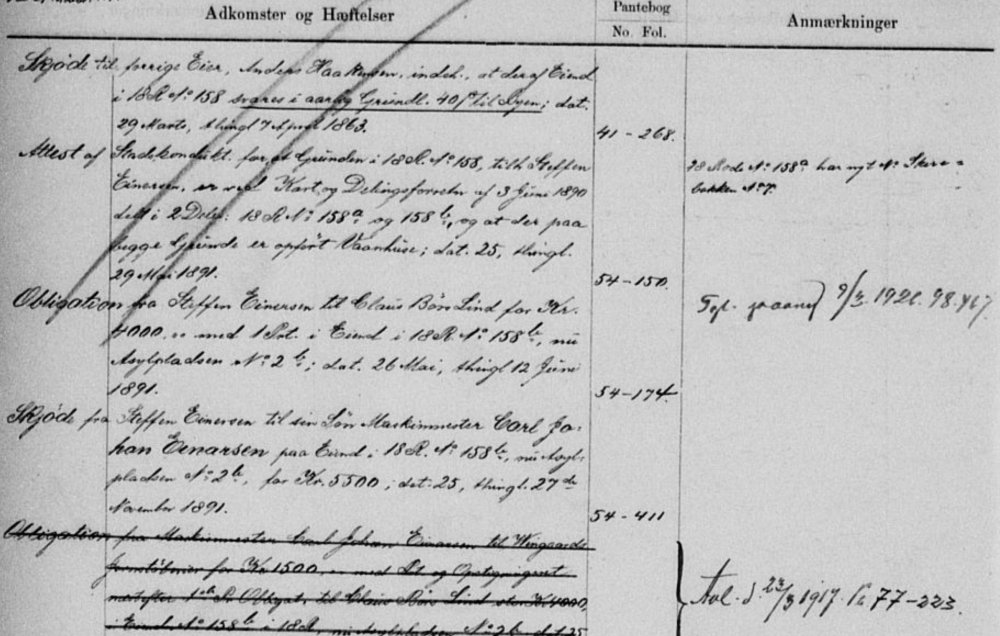 Adkomster og Hæftelser
Pantebog
No. Fol.
Anmærkninger
Skjøde til forrige Eier, Anders Haakensen, indeh., at der af Eiend
i 18 R. No 158 svares i aarlig Grundl. 40 s til Byen; dat.
29 Marts, thingl 7 April 1863.
41-268.
Attest af Stadskondukt. for at Grunden i 18 R. No 158, tilh. Steffen
Einersen, er ved Kart og Delingsforretn af 3 Juni 1890
delt i 2 Dele: 18 R No 158a og 158b, og at der paa
begge Grunde er opført Vaanhuse; dat. 25, thingl.
29 Mai 1891.
54-150.
18 Rode No 158a har nyt No
bakken No 7.
Obligation fra Steffen Einersen til Claus Børs Lind for Kr.
4000, med 1 Prt. i Eiend i 18 R. No 158b, nu
Asylpladsen No 2b; dat. 26 Mai, thingl 12 Juni
1891.
54-174.
9/3 1921. 98.467.
Skjøde fra Steffen Einersen til sin Søn Maskinmester Carl Jo-
han Einarsen paa Eiend i 18 R. No 158b, nu Asyl-
pladsen No 2b, for Kr. 5500; dat. 25, thingl. 27de
November 1891.
54-411
Obligation fra Maskinmester Carl Johan Einarsen til Wingaards
for Kr 1500, med Prt og Opstigningsret
næstefter 1ste Pr. Obligat. til Claus Børs Lind stor Kr 4000,
i Eiend. No 158b i 18 R, nu Asylpladsen No 2b, dat 25
Avl. d. 23/3 1917. Pb 77-223.